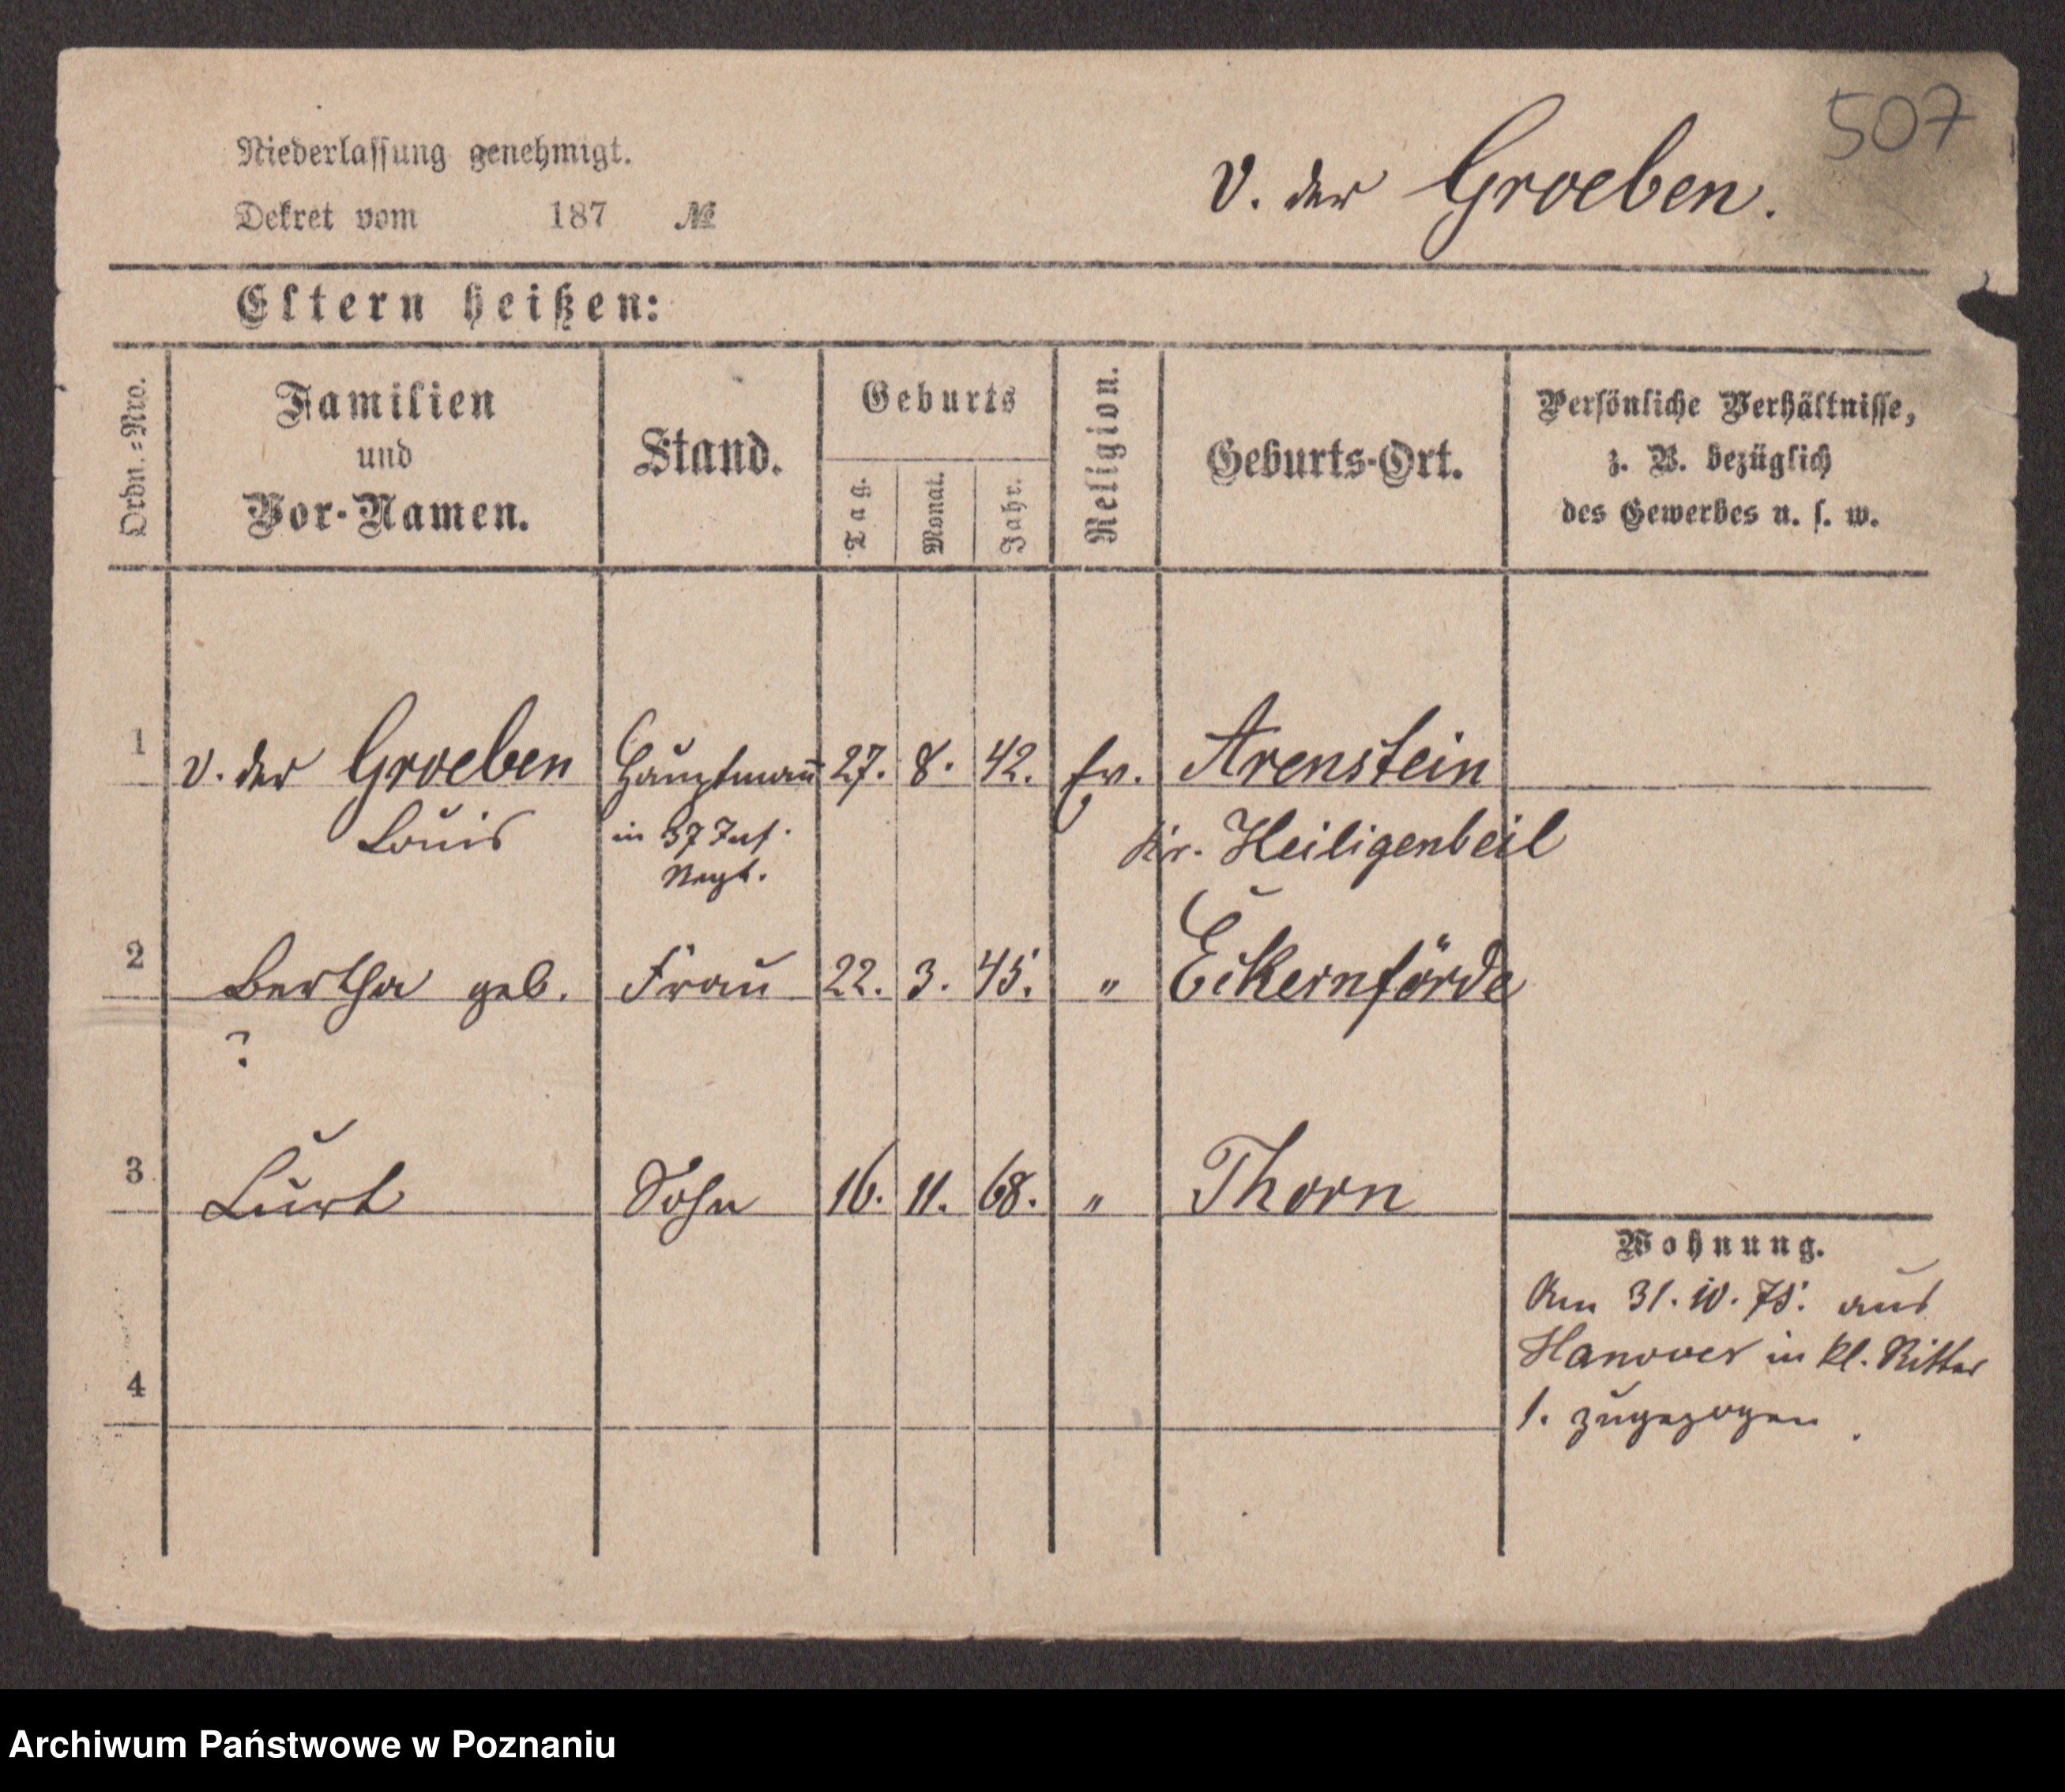 507
Niederlassung genehmigt.
v. der Groeben.
Dekret vom 187 №
Eltern heißen:
Ordn.=Nro.
Familien
und
Vor-Namen.
Stand.
Geburts
Tag.
Monat.
Jahr.
Religion.
Geburts-Ort.
Persönliche Verhältnisse,
z. B. bezüglich
des Gewerbes u. s. w.
1 v. der Groeben Hauptmañ 27. 8. 42. Ev. Arenstein
Louis in 37 Inf. Kr. Heiligenbeil
Regt.
2 Bertha geb. Frau 22. 3. 45. " Eckernförde
?
3 Curt Sohn 16. 11. 68. " Thorn
Wohnung.
Am 31. 10. 75. aus
Hanover in kl. Ritter
4
1. zugezogen.
Archiwum Państwowe w Poznaniu